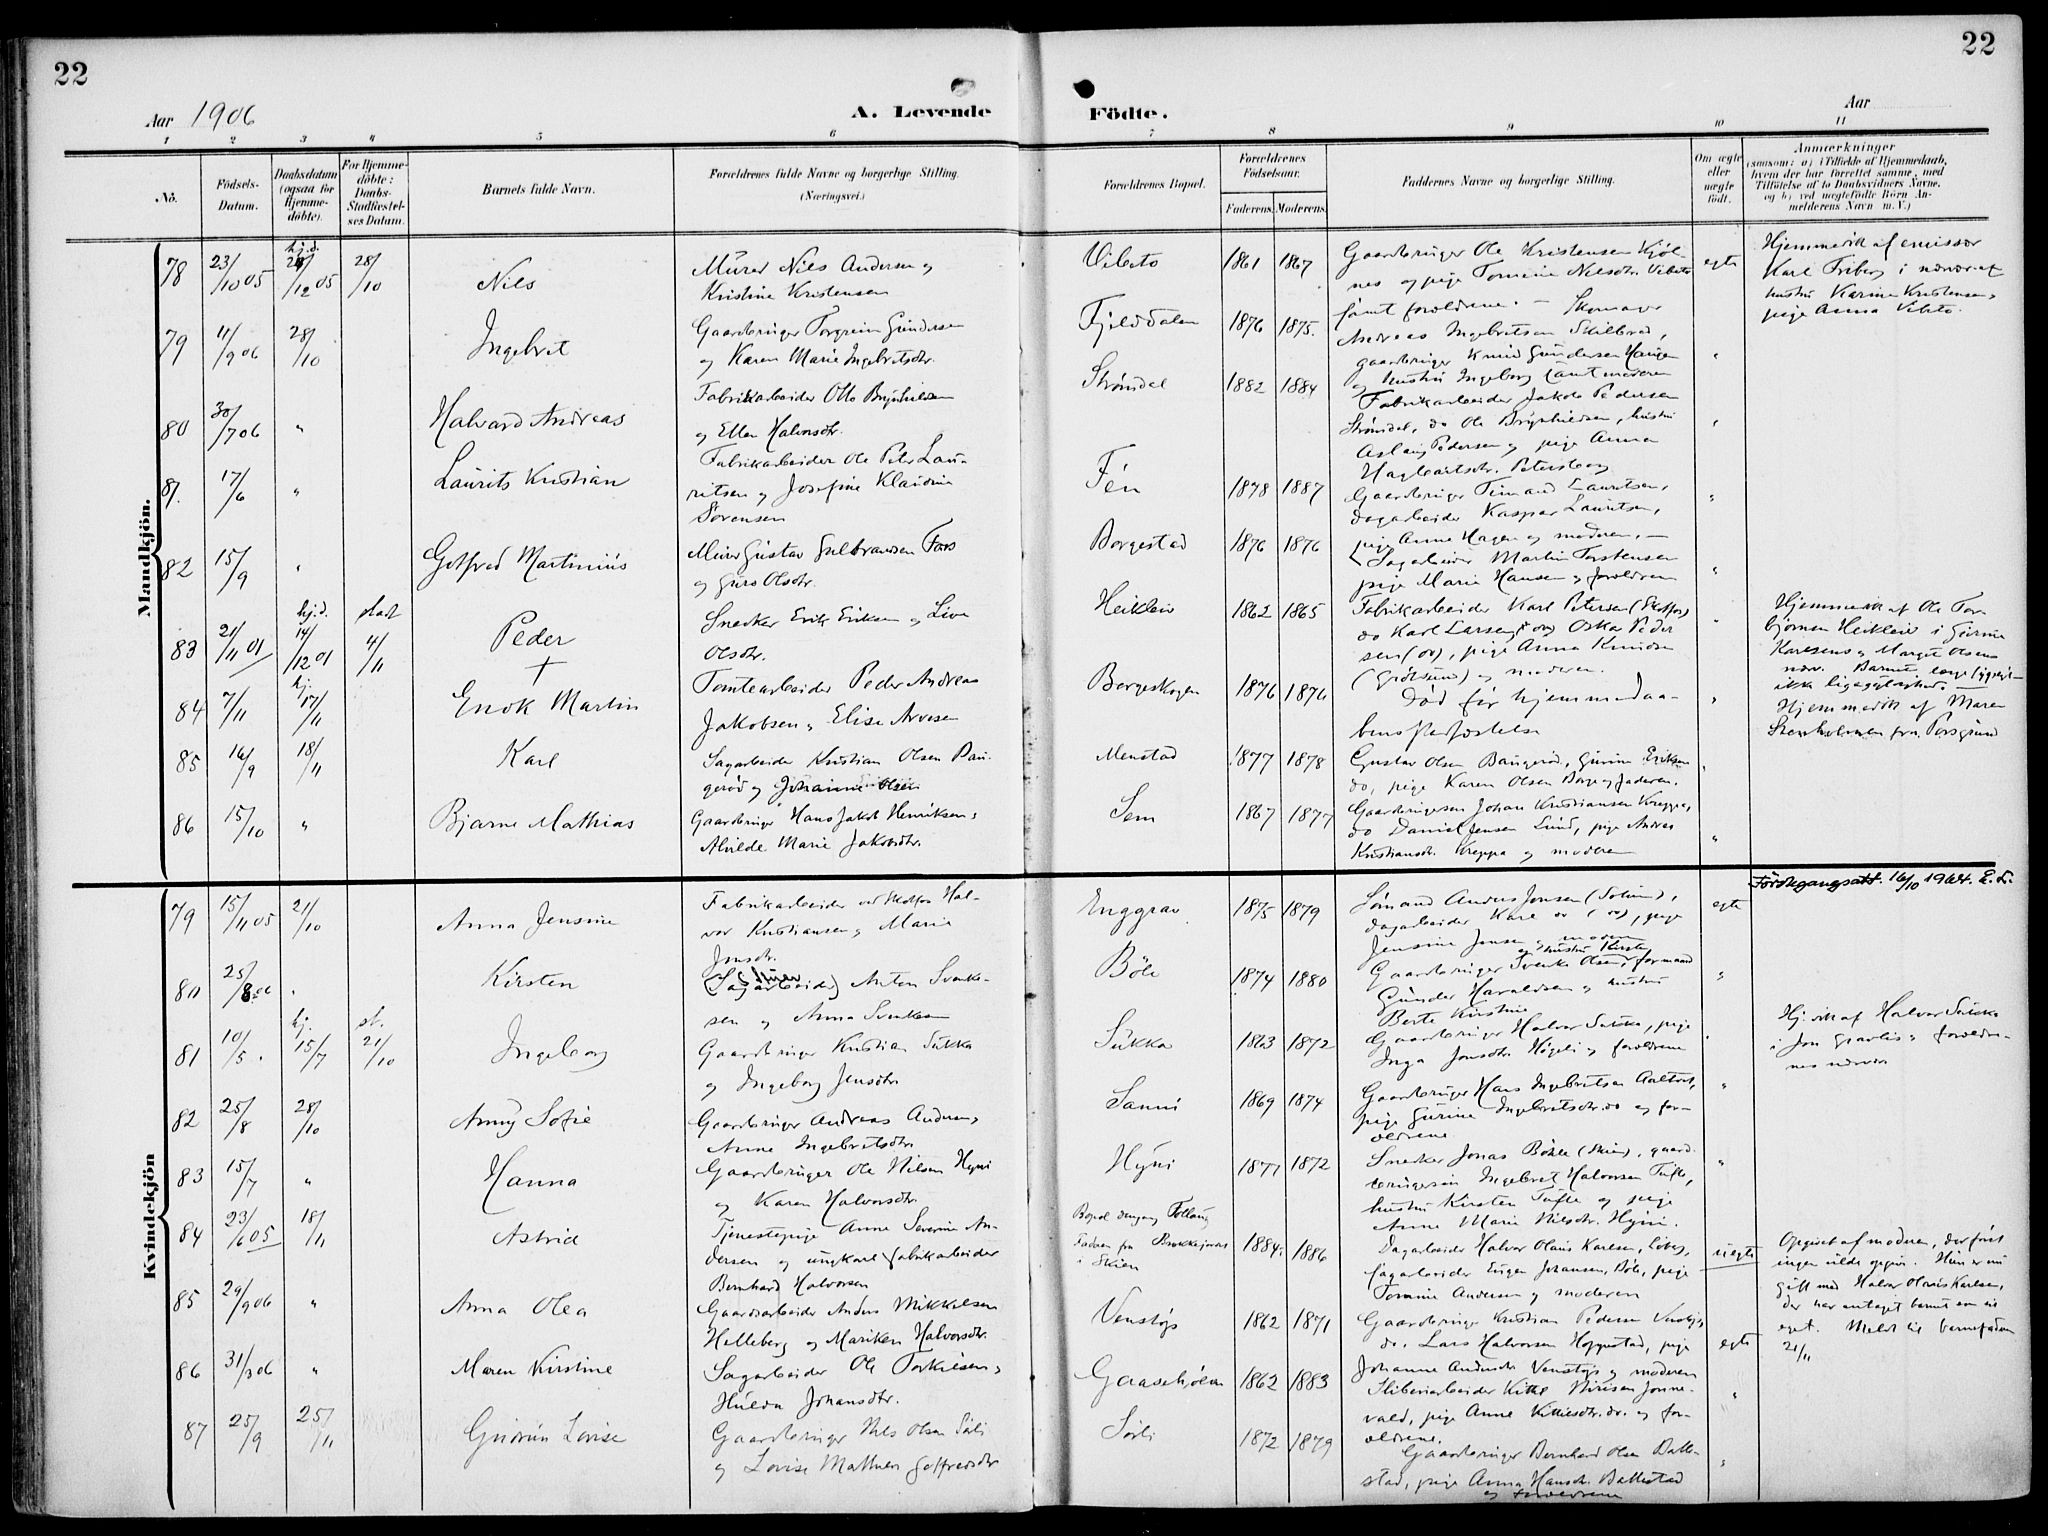 22
22
Aar 1906
A. Levende
Födte.
Aar
1 2 3 4 5 6 7 8 9 10 11
No.
Födsels-Datum.
Daabsdatum (ogsaa for Hjemme-döbte).
For Hjemme-döbte: Daabs-Stadfæstel-ses Datum.
Barnets fulde Navn.
Forældrenes fulde Navne og borgerlige Stilling.
(Næringsvei.)
Forældrenes Bopæl.
Forældrenes Födselsaar.
Faderens. Moderens.
Faddernes Navne og borgerlige Stilling.
Om ægte eller uægte födt.
Anmærkninger
(saasom: a) i Tilfælde af Hjemmedaab, hvem der har forrettet samme, med Tilföielse af to Daabsvidners Navne, og b) ved uægtefödte Börn An-melderens Navn m. V.)
Mandkjön.
78 23/10 05 hj.d. /12 05 28/10 Nils
Murer Nils Andersen og
Kristine Kristensen
Vibeto 1861 1867
Gaardbruger Ole Kristensen Kjöl-
nes og pige Tomine Nilsdtr. Vibeto
samt forældrene.
egte
Hjemmedøbt af emissær
Karl Friberg i nærvær af
hustru Karine Kristensen,
pige Anna Vibeto.
79 11/9 06 28/10 Ingebret
Gaardbruger Torgrim Gundersen
og Karen Marie Ingebretsdtr.
Fjelddalen 1876 1875.
Skomager
Andreas Ingebretsen Skilbred,
gaardbruger Knud Gundersen Haugen
og hustru Ingeborg samt moderen
"
80 30/7 06 " Halvard Andreas
Fabrikarbeider Otto Brynhildsen
og Ellen Halvorsdtr.
Strömdal 1882 1884
Fabrikarbeider Jakob Pedersen
Strömdal, do Ole Brynhildsen, hustru
Aslaug Pedersen og pige Anna
Hagbartsdtr. Petersborg
"
81. 17/6 " Laurits Kristian
Fabrikarbeider Ole Peter Lau-
ritsen og Josefine Klaudine
Sørensen
Fén 1878 1887
Gaardbruger Timand Lauritsen,
dagarbeider Kaspar Lauritsen,
pige Anne Hagen og moderen.
"
82 15/9 " Gotfred Martinius
Murer Gustav Gulbrandsen Fors
og Guro Olsdtr.
Borgestad 1876 1876
Sagarbeider Martin Torstensen
pige Marie Hansen og forældrene
"
83 21/11 01 hj.d. 14/12 01 stadf. 4/11 Peder
Snedker Erik Eriksen og Live
Olsdtr.
Heikleiv 1862 1865
Fabrikarbeider Karl Petersen (Skotfos)
do Karl Larsen, do Oskar Peder
sen (do), pige Anna Knudsen
og moderen.
"
Hjemmedøbt af Ole Tor
björnsen Heikleiv i Gurine
Karlsens og Margit Olsens
nærv.
84 7/11 hj. 17/11 † Enok Martin
Tomtearbeider Peder Andreas
Jakobsen og Elise Arvesen
Borgeskogen 1876 1876
Död før hjemmedaa-
bens stadfæstelse
"
Hjemmedøbt af Maren
Stenholmen fra Porsgrund
85 16/9 18/11 Karl
Sagarbeider Kristian Olsen Bau-
gerød og Johanne Olsen
Menstad 1877 1878
Gustav Olsen Baugerød, Gurine Eriksen
do, pige Karen Olsen Borge og faderen.
"
86 15/10 " Bjarne Mathias
Gaardbruger Hans Jakob Henriksen,
Alvilde Marie Jakobsdtr.
Sem 1867 1877
Gaardbrugersøn Johan Kristiansen Kreppa,
do Daniel Jensen Lund, pige Andrea
Kristiansdtr. Kreppa og moderen
"
Kvindekjön
79 15/11 05 21/10 Anna Jensine
Fabrikarbeider ved Skotfos Hal-
vor Kristiansen og Marie
Jensdtr.
Enggrav 1875 1879
Sømand Anders Jensen (Solum),
dagarbeider Karl do (do), pige
Jensine Jensen og moderen
egte
Förstegangsatt. 16/10 1964. E. L.
80 25/8 06 " Kirsten
(Sagarbeider) Anton Svenke-
sen og Anna Svenksen
Böle 1874 1880
Gaardbruger Svenke Olsen og hustru Kirsten, formand
Gunder Haraldsen og hustru
Berte Kirstine
"
81 10/5 hj. 15/7 st. 21/10 Ingeborg
Gaardbruger Kristian Sukka
og Ingeborg Jensdtr.
Sukka 1863 1872
Gaardbruger Halvor Sukka, pige
Inga Jonsdtr. Högeli og forældrene
"
Hj. døbt af Halvor Sukka
i Jon Gravlis og forældre-
nes nærvær
82 25/8 28/10 Anny Sofie
Gaardbruger Andreas Andersen,
Anne Ingebretsdtr.
Sanni 1869 1874
Gaardbruger Hans Ingebretsen Aaltvet,
pige Gurine Ingebretsdtr. do og for-
ældrene.
"
83 15/7 " Hanna
Gaardbruger Ole Nilsen Hyni
og Karen Halvorsdtr.
Hyni 1871 1872
Snedker Jonas Böhle (Skien), gaard-
brugersøn Ingebret Halvorsen Tufte,
hustru Kirsten Tufte og pige
Anne Marie Nilsdtr. Hyni.
"
84 23/6 05 18/11 Astrid
Tjenestepige Anne Severine An-
dersen og ungkarl fabrikarbeider
Bernhard Halvorsen
Bopæl dengang Follaug
Faderen fra Brekkejordet
i Skien
1884. 1886
Dagarbeider Halvor Olaus Karlsen,
sagarbeider Eugen Johansen, Böle, pige
Tomine Andersen og moderen
uegte
Opgivet af moderen, der först
ingen vilde opgive. Hun er nu
gift med Halvor Olaus Karlsen,
der har antaget barnet som sit
eget. Meldt til barnefaderen
21/11
85 29/9 06 " Anna Olea
Gaardsarbeider Anders Mikkelsen
Helleberg og Mariken Halvorsdtr.
Venstøp 1862 1871
Gaardbruger Kristian Pedersen Venstøp,
do. Lars Halvorsen Hoppestad, pige
Johanne Andersdtr Venstøp og moderen
egte
86 31/3 06 " Maren Kirstine
Sagarbeider Ole Torkilsen,
Hulda Johansdtr.
Gaaseholmen 1862 1883
Sliberiarbeider Kittil Nirisen Jonne-
vald, pige Anne Kittilsdtr. do. og for-
ældrene.
"
87 25/9 25/11 Gudrun Lovise
Gaardbruger Nils Olsen Sørli
og Lovise Mathea Gotfredsdtr
Sørli 1872 1879
Gaardbruger Bernhard Olsen Balle-
stad, pige Anna Hansdtr. Ballestad
og forældrene
"